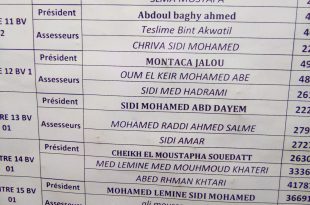 Président
E 11 BV
2
Abdoul baghy ahmed
Assesseurs
Teslime Bint Akwatil
CHRIVA SIDI MOHAMED
Président
MONTACA JALOU
E 12 BV 1
Assesseurs
OUM EL KEIR MOHAMED ABE
SIDI MED HADRAMI
Président
SIDI MOHAMED ABD DAYEM
TRE 13 BV
01
Assesseurs
MOHAMED RADDI AHMED SALME
279
SIDI AMAR
272
Président
CHEIKH EL MOUSTAPHA SOUEDATT
2630
TRE 14 BV
01
Assesseurs
MED LEMINE MED MOUHMOUD KHATERI
3336
ABED RHMAN KHTARI
4178
Président
MOHAMED LEMINE SIDI MOHAMED
3669
TRE 15 BV